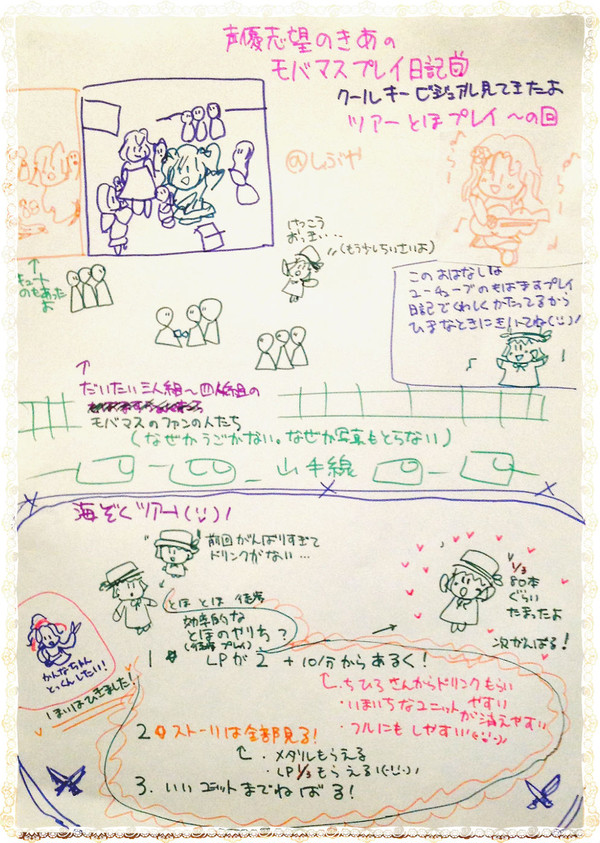 声優志望のきあの
モバマスプレイ日記
クールキービジュアル見てきたよ
ツアーとほプレイ〜の回
@しぶや
けっこう
おっきい・・・
(もう少しちいさいよ)
↑
キュート
のもあった
よ
このおはなしは
ユーチューブのもばますプレイ
日記でくわしくかたってるから
ひまなときにきいてね(ッ)!
↑
だいたい三人組〜四人組の
モバマスのファンの人たち
(なぜかうごかない。なぜか写真もとらない)
山手線
海ぞくツアー(ッ)!
前回がんばりすぎて
ドリンクがない…
とほとほ 徒歩
効率的な
とほのやりち?
(徒歩プレイ)
1/3
80本
ぐらい
たまったよ
次がんばる!
かんなちゃん
とっくんしたい!
1まいはひきました!
1 LPが2 +10分からあるく!
・ちひろさんからドリンクもらい
・いまいちなユニットが消えやすい
・フルにもしやすい
2 ストーリは全部見る!
↑・メダルもらえる
・LP 1/3もらえる!
3. いいユニットまでねばる!